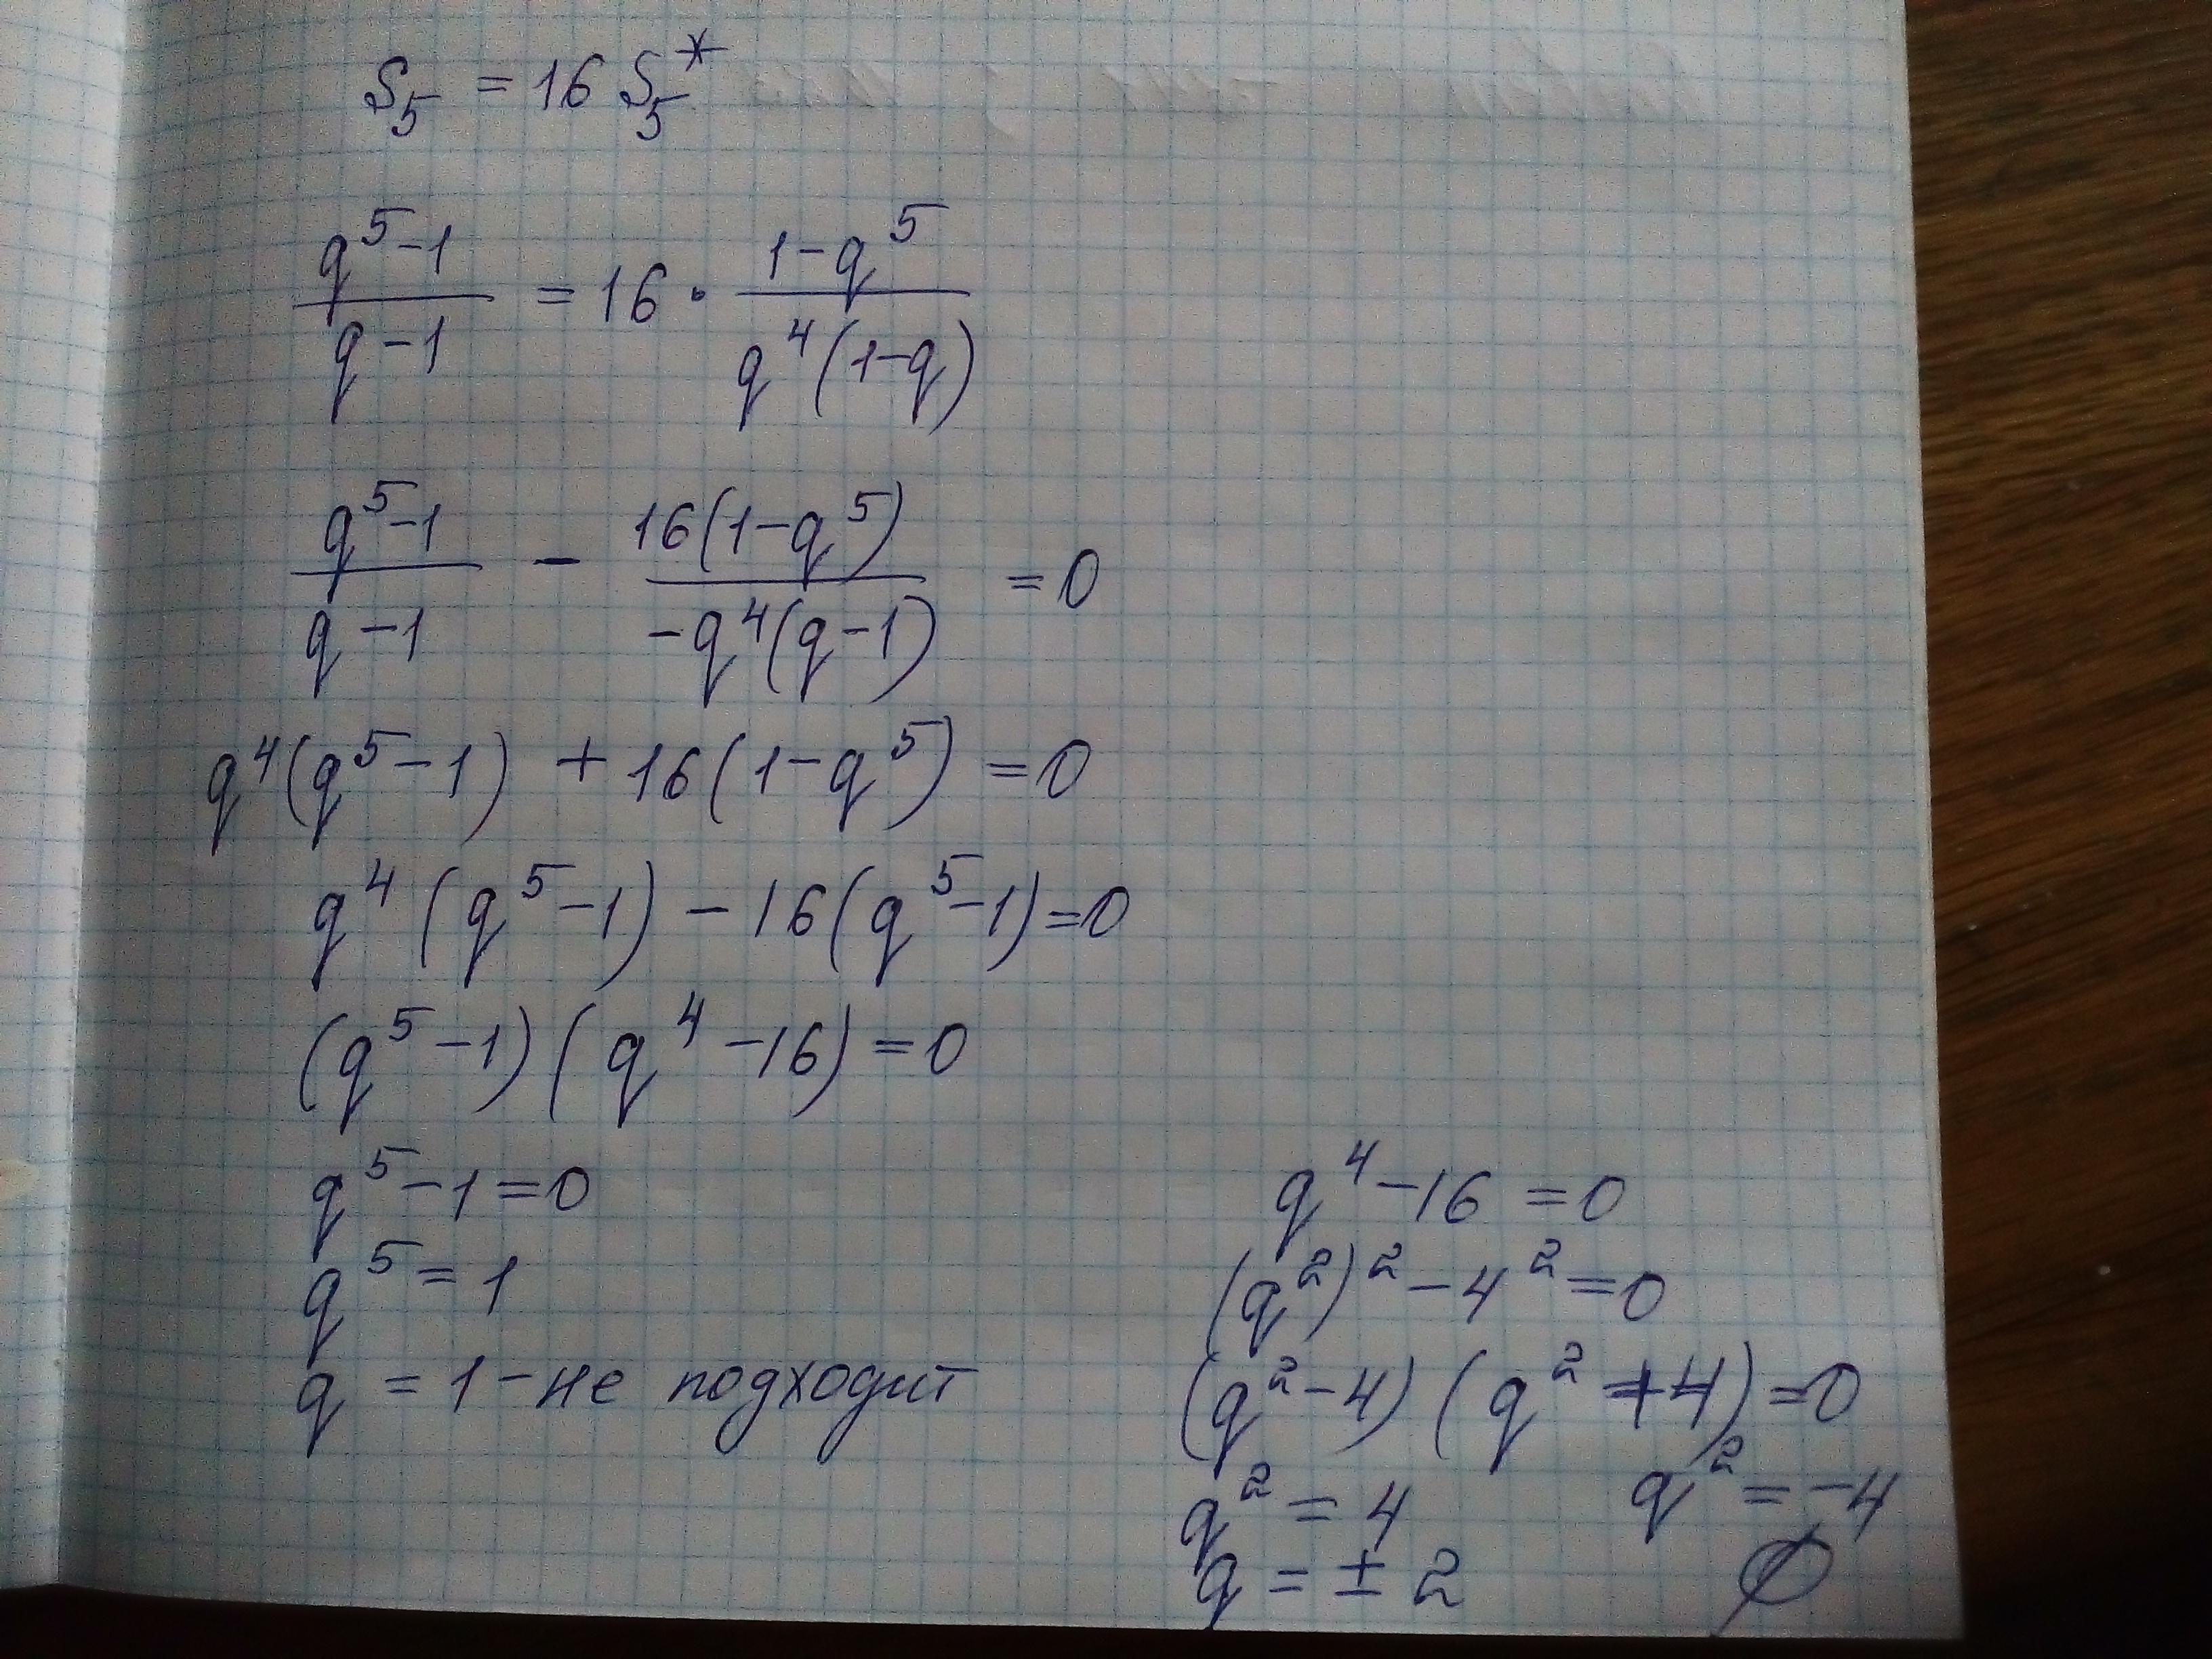 S₅ = 16 S₅*
(q⁵-1)/(q-1) = 16 · (1-q⁵)/(q⁴(1-q))
(q⁵-1)/(q-1) - (16(1-q⁵))/(-q⁴(q-1)) = 0
q⁴(q⁵-1) + 16(1-q⁵) = 0
q⁴(q⁵-1) - 16(q⁵-1) = 0
(q⁵-1)(q⁴-16) = 0
q⁵-1 = 0
q⁵ = 1
q = 1 - не подходит
q⁴-16 = 0
(q²)²-4² = 0
(q²-4)(q²+4) = 0
q² = 4
q = ± 2
q² = -4
∅